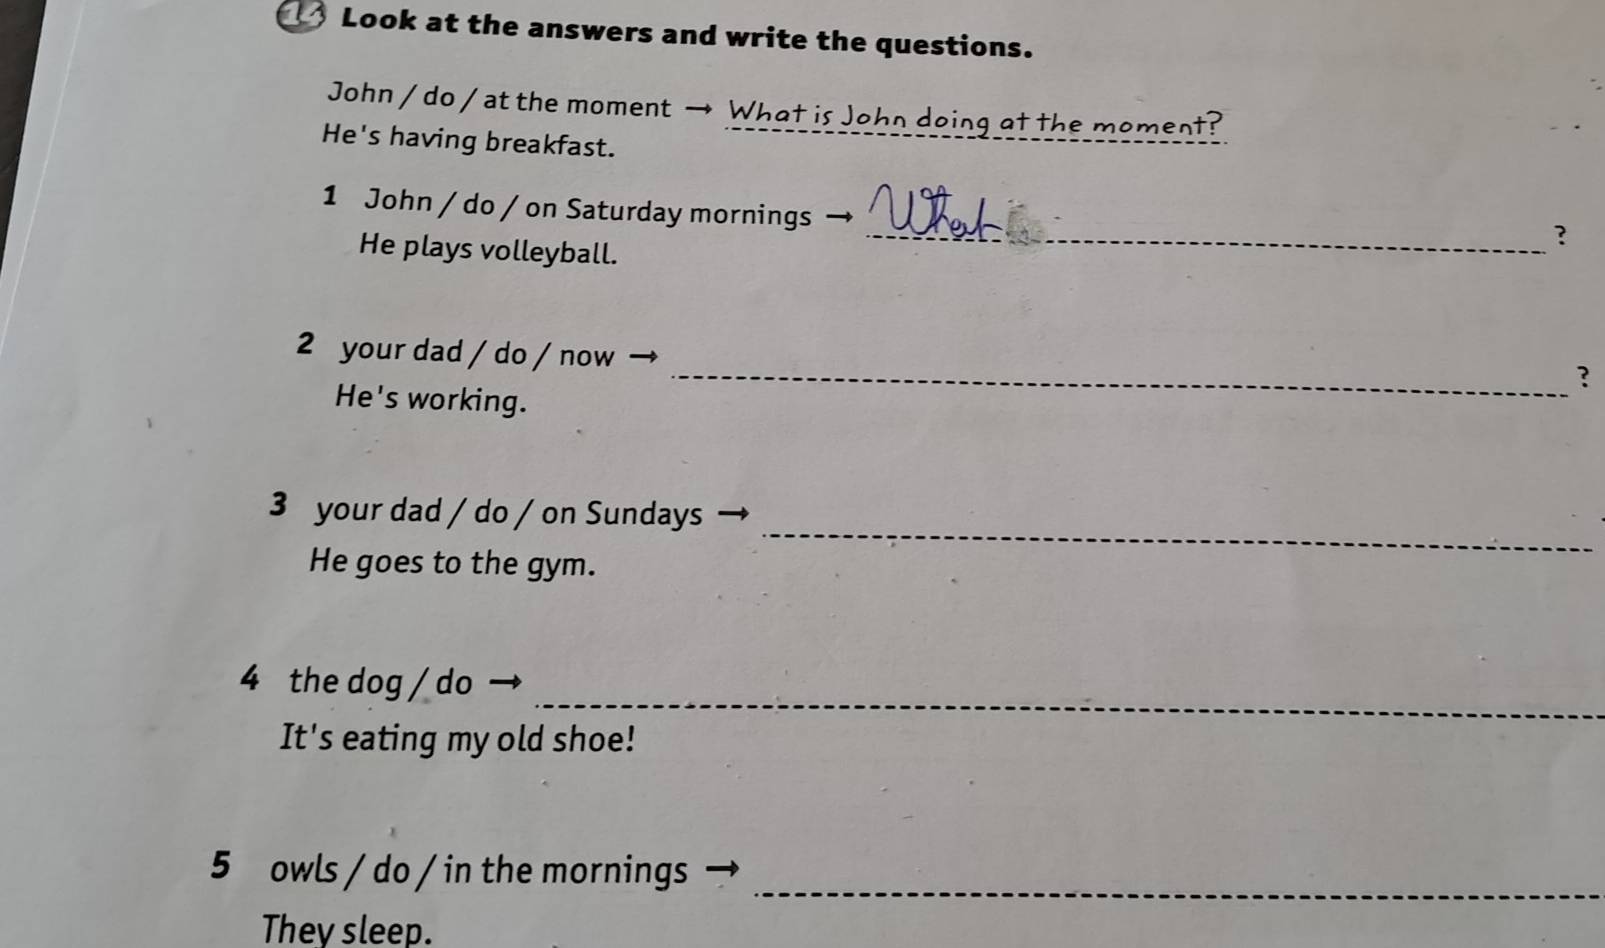 14 Look at the answers and write the questions.
John / do / at the moment → What is John doing at the moment?
He's having breakfast.
1 John / do / on Saturday mornings → What ?
He plays volleyball.
2 your dad / do / now → ?
He's working.
3 your dad / do / on Sundays →
He goes to the gym.
4 the dog / do →
It's eating my old shoe!
5 owls / do / in the mornings →
They sleep.